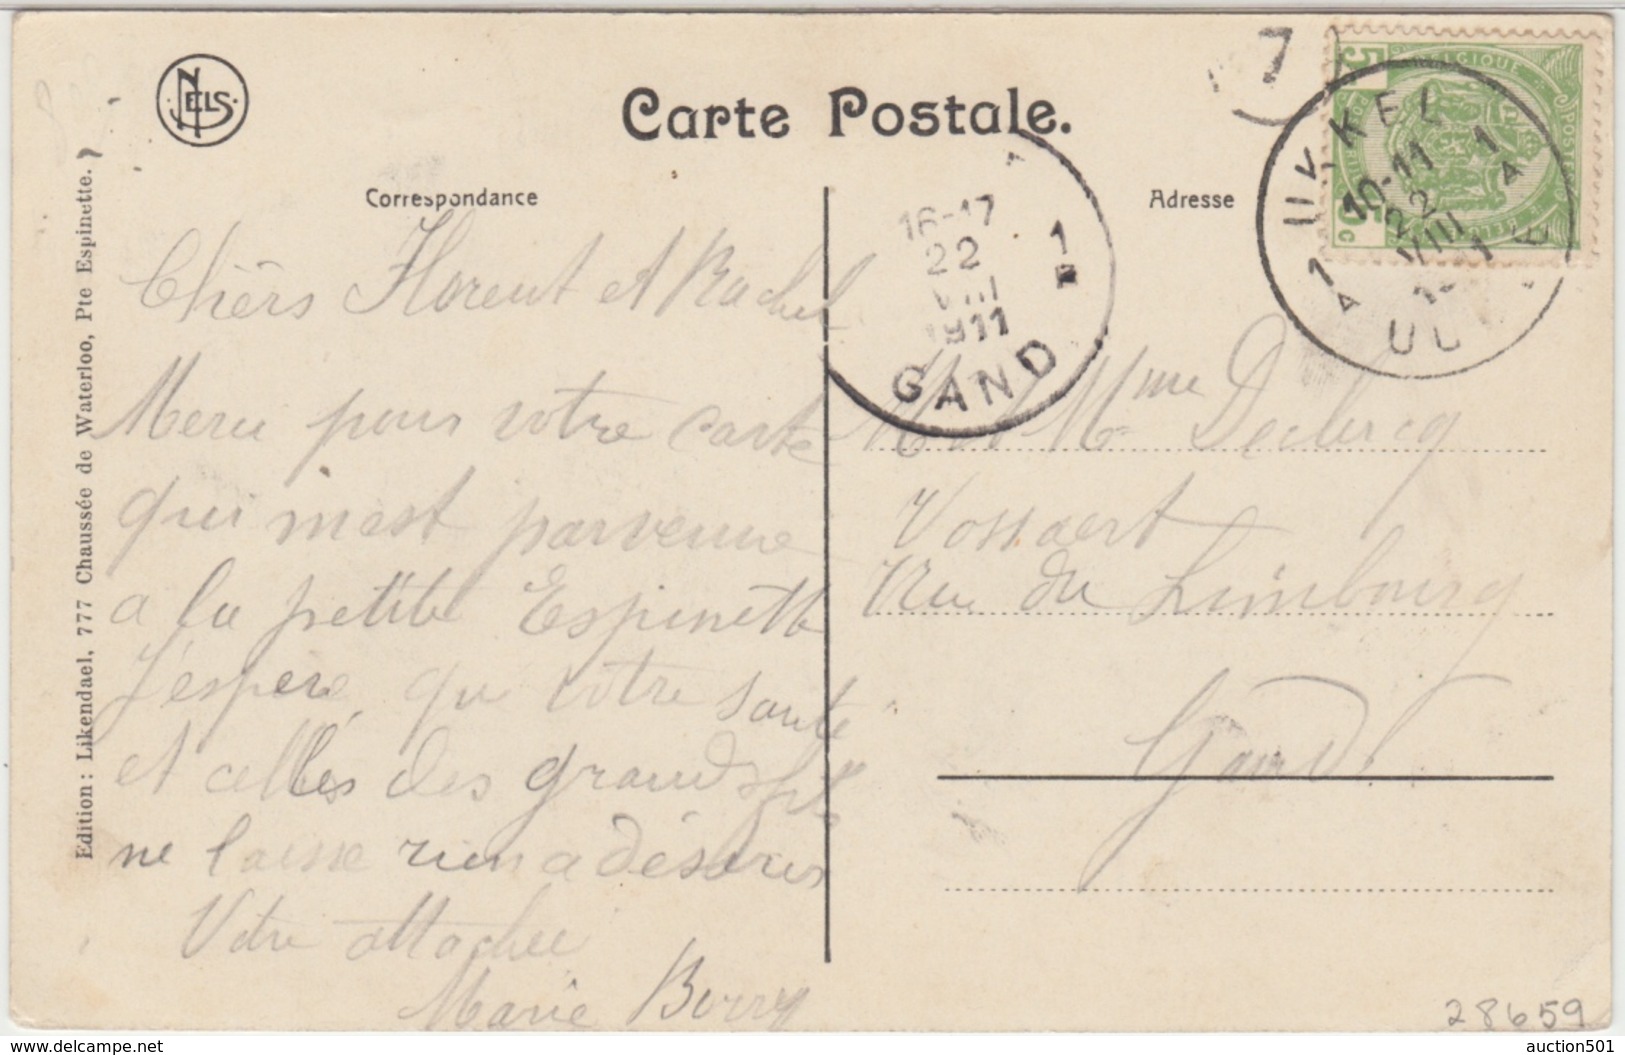 NELS
Carte Postale.
Correspondance
Adresse
7
BELGIQUE
POSTES
5
5c
UKKEL 1
A
10-11
22
VIII
1
A
16-17
22
VIII
1911
1
GAND
Edition : Likendael, 777 Chaussée de Waterloo, Pte Espinette.)
Chèrs Florent et Rachel
Merci pour votre carte
qui m'est parvenue
a la petite Espinette
J'espère que votre santé
et celles des grands
ne laisse rien a désirer
Votre attachée
Marie Borry
M et Mme Declercq
Vossaert
Rue du Limbourg
Gand
28659
delcampe.net
auction501